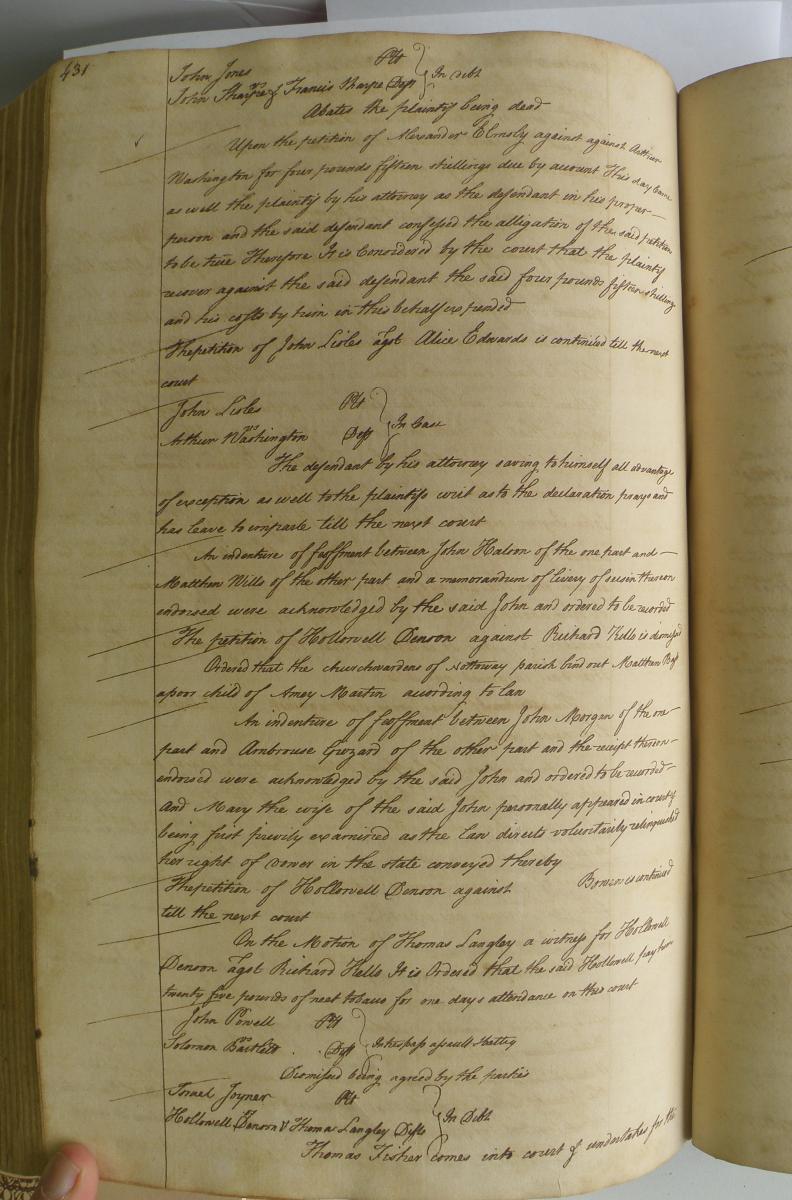 431
John Jones Plt
vs In debt
John Sharpe & Francis Sharpe Deft
Abates the plaintif being dead
Upon the petition of Alexander Elmsly against against Arthur
Washington for four pounds fifteen shillings due by account This day came
as well the plaintif by his attorney as the defendant in his proper
person and the said defendant confessed the alligation of the said petition
to be true Therefore It is Considered by the court that the plaintif
recover against the said defendant the said four pounds fifteen shillings
and his costs by him in this behalf expended
The petition of John Lisles agst Alice Edwards is continued till the next
court
John Lisles Plt
vs In Case
Arthur Washington Deft
The defendant by his attorney saving to himself all advantage
of exception as well to the plaintifs writ as to the declaration prays and
has leave to imparle till the next court
An indenture of feoffment between John of the one part and
Matthew Wills of the other part and a memorandum of livery of seisin thereon
endorsed were acknowledged by the said John and ordered to be recorded
The petition of Hollowell Denson against Richard Kello is dismist
Ordered that the churchwardens of Nottoway parish bind out Matthew
a poor child of Amey Martin acording to law
An indenture of feoffment between John Morgan of the one
part and Ambrouse of the other part and the receipt thereon
endorsed were acknowledged by the said John and ordered to be recorded
And Mary the wife of the said John personally appeared in court &
being first privily examined as the law directs voluntarily relinquished
her right of dower in the state conveyed thereby
The petition of Hollowell Denson against Bowen is continued
till the next court
On the Motion of Thomas Langley a witness for Hollowell
Denson agst Richard Kello It is Ordered that the said Hollowell pay him
twenty five pounds of neet tobaco for one days attendance on this court
John Powell Plt
vs In trespass assault & battery
Solomon Bartlett Deft
Dismissed being agreed by the parties
Israel Joyner Plt
vs In Debt
Hollowell Denson & Thomas Langley Defts
Thomas Fisher comes into court & undertakes for the